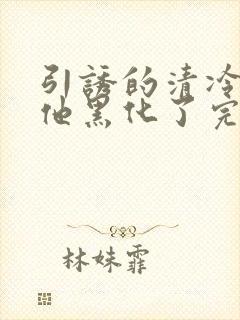 引誘的清冷
他黑化了完
林妹霏